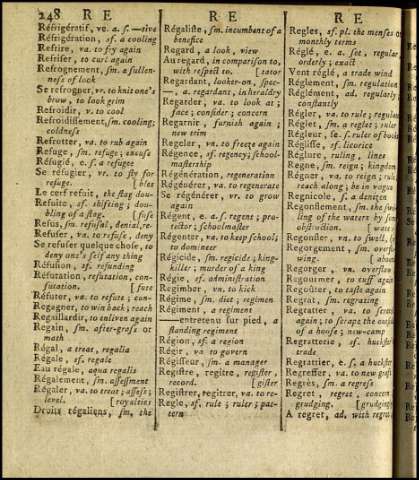 248 R E
Réfrigératif, ve. a. f. —tive
Réfrigération, sf. a cooling
Refrire, va. to fry again
Refriser, to curl again
Refrognement, sm. a sullen-
ness of look
Se refrogner, vr. to knit one's
brow, to look grim
Refroidir, v. to cool
Refroidissement, sm. cooling;
coldness
Refrotter, va. to rub again
Refuge, sm. refuge; excuse
Réfugié, e. f. a refugee
Se réfugier, vr. to fly for
refuge.
Le cerf refuit, the stag dou-
Refuite, sf. shifting; dou-
bling of a stag. [fuse
Refus, sm. refusal, denial, re-
Refuser, va. to refuse, deny
Se refuser quelque chose, to
deny one's self any thing
Réfusion, sf. refunding
Réfutation, refutation, con-
futation. [fute
Réfuter, va. to refute; con-
Regagner, to win back; reach
Regaillardir, to enliven again
Regain, sm. after-grass or
math
Régal, a treat, regalia
Régale, sf. regale
Eau régale, aqua regalis
Régalement, sm. assessment
Régaler, va. to treat; assess;
level. [royalties
Droits régaliens, sm. the
R E
Régaliste, sm. incumbent of a
benefice
Regard, a look, view
Au regard, in comparison to,
with respect to. [tator
Regardant, looker-on, spec-
—, a. regardant, in heraldry
Regarder, va. to look at;
face; consider; concern
Regarnir, furnish again;
new trim
Regeler, va. to freeze again
Régence, sf. regency; school-
mastership
Régénération, regeneration
Régénérer, va. to regenerate
Se régénérer, vr. to grow
again
Régent, e. a. f. regens; pro-
testor; schoolmaster
Régenter, va. to keep school;
to domineer
Régicide, sm. regicide; king-
killer; murder of a king
Régie, sf. administration
Regimber, vn. to kick
Régime, sm. diet; regimen
Régiment, a regiment
——entretenu sur pied, a
standing regiment
Région, sf. a region
Régir, va to govern
Régisseur, sm. a manager
Registre, regitre, register,
record. [gister
Registrer, regitrer, va. to re-
Regle, sf. rule; ruler; pat-
tern
R E
Regles, sf. pl. the menses or
monthly terms
Réglé, e. a. set, regular,
orderly; exact
Vent réglé, a trade wind
Réglement, sm. regulation
Réglément, ad. regularly;
constantly
Régler, va. to rule; regulate
Réglet, sm. a reglet; ruler
Régleur, se. f. ruler of books
Réglisse, sf. licorice
Réglure, ruling, lines
Regne, sm. reign; kingdom
Régner, va. to reign; rule
reach along; be in vogue
Regnicole, sf. a denizen
Regonflement, sm. the swel-
ling of the waters by some
obstruction.
Regonfler, vn. to swell,
Regorgement, sm. overflo-
wing.
Regorger, vn. overflow
Regourmer, to cuff again
Regoûter, to taste again
Regrat, sm. regrating
Regratter, va. to scratch
again; to scrape the outside
of a house; new-camp
Regratterie, sf. huckster's
trade
Regrattier, e. f. a huckster
Regreffer, va. to new graft
Regrès, sm. a regress
Regret, regret, concern
grudging. [grudgingly
A regret, ad. with regret